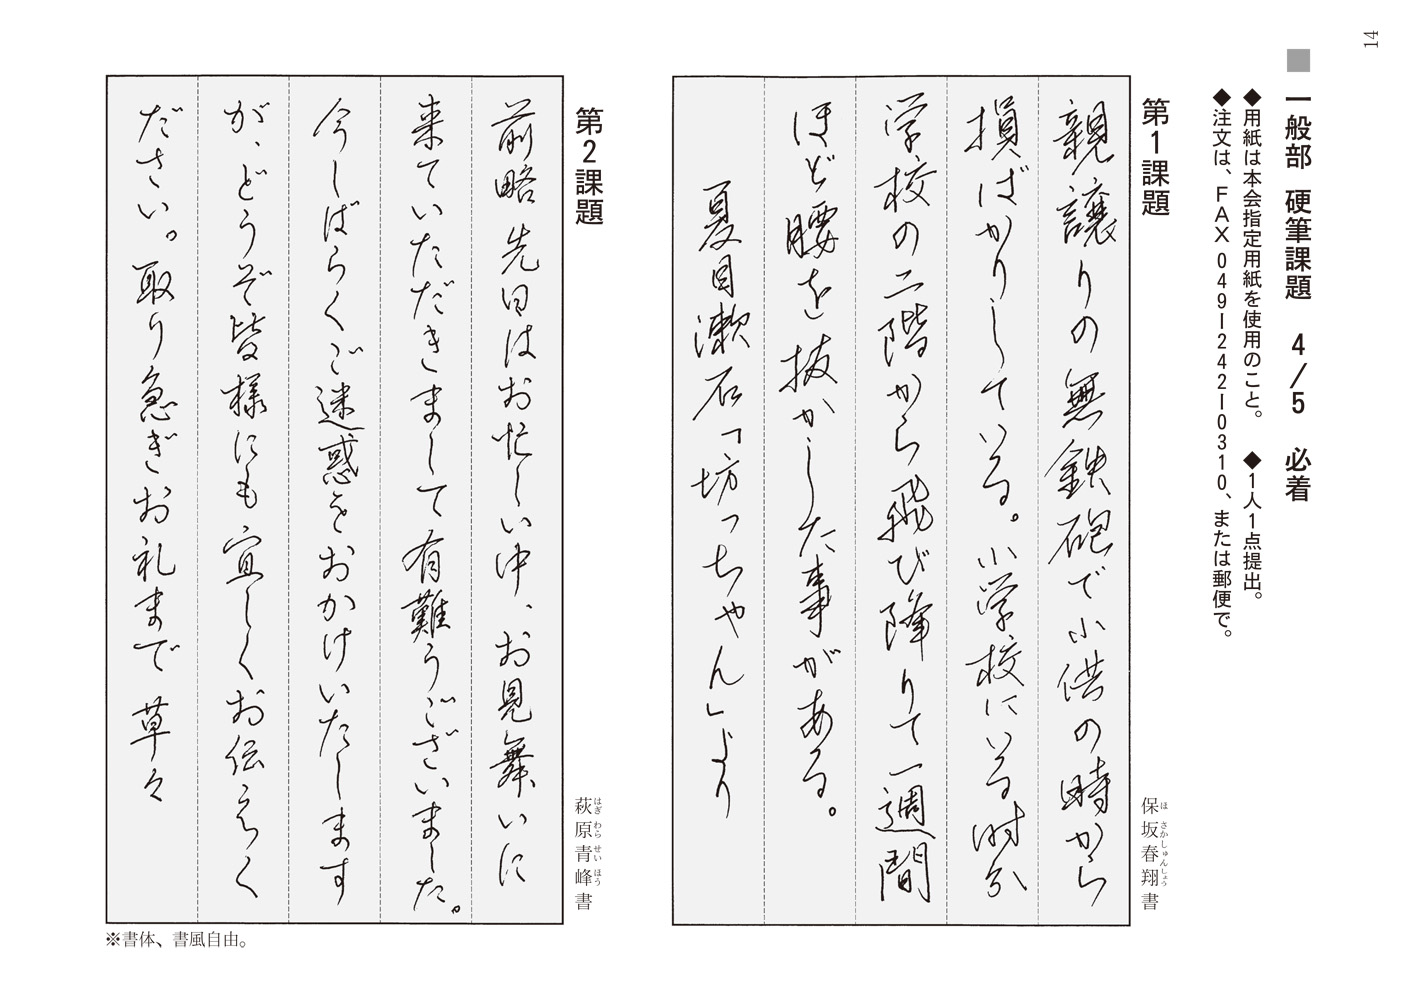 14
■ 一般部 硬筆課題 4/5 必着
◆用紙は本会指定用紙を使用のこと。 ◆1人1点提出。
◆注文は、FAX 049ー242ー0310、または郵便で。
第1課題
保坂春翔書
ほさかしゅんしょう
親譲りの無鉄砲で小供の時から
損ばかりしている。小学校にいる時分
学校の二階から飛び降りて一週間
ほど腰を抜かした事がある。
夏目漱石「坊っちゃん」より
第2課題
萩原青峰書
はぎわらせいほう
前略 先日はお忙しい中、お見舞いに
来ていただきまして有難うございました。
今しばらくご迷惑をおかけいたします
が、どうぞ皆様にも宜しくお伝えく
ださい。取り急ぎお礼まで 草々
※書体、書風自由。